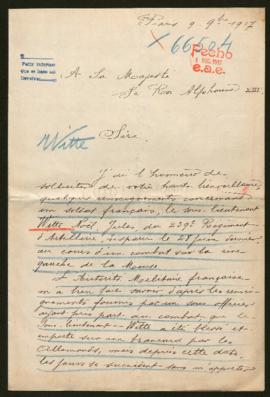 Paris 9. 9bre 1917
X 66504
Fecho
e.a.e.
A Sa Majesté
Le Roi Alphonse XIII
Witte
Sire
J'ai l'honneur de
solliciter de votre haute bienveillance,
quelques renseignements concernant
un soldat français, le sous-lieutenant
Witte Noël, Jules, du 239e Régiment
d'Artillerie, disparu le 28 juin dernier,
au cours d'un combat sur la rive
gauche de la Meuse.
L'Autorité Militaire française
m'a bien fait savoir d'après les rensei-
gnements fournis par un sous-officier
ayant pris part au combat que le
sous-lieutenant Witte a été blessé et
emporté sur un brancard par les
Allemands, mais depuis cette date,
les jours se succèdent sans m'apporter